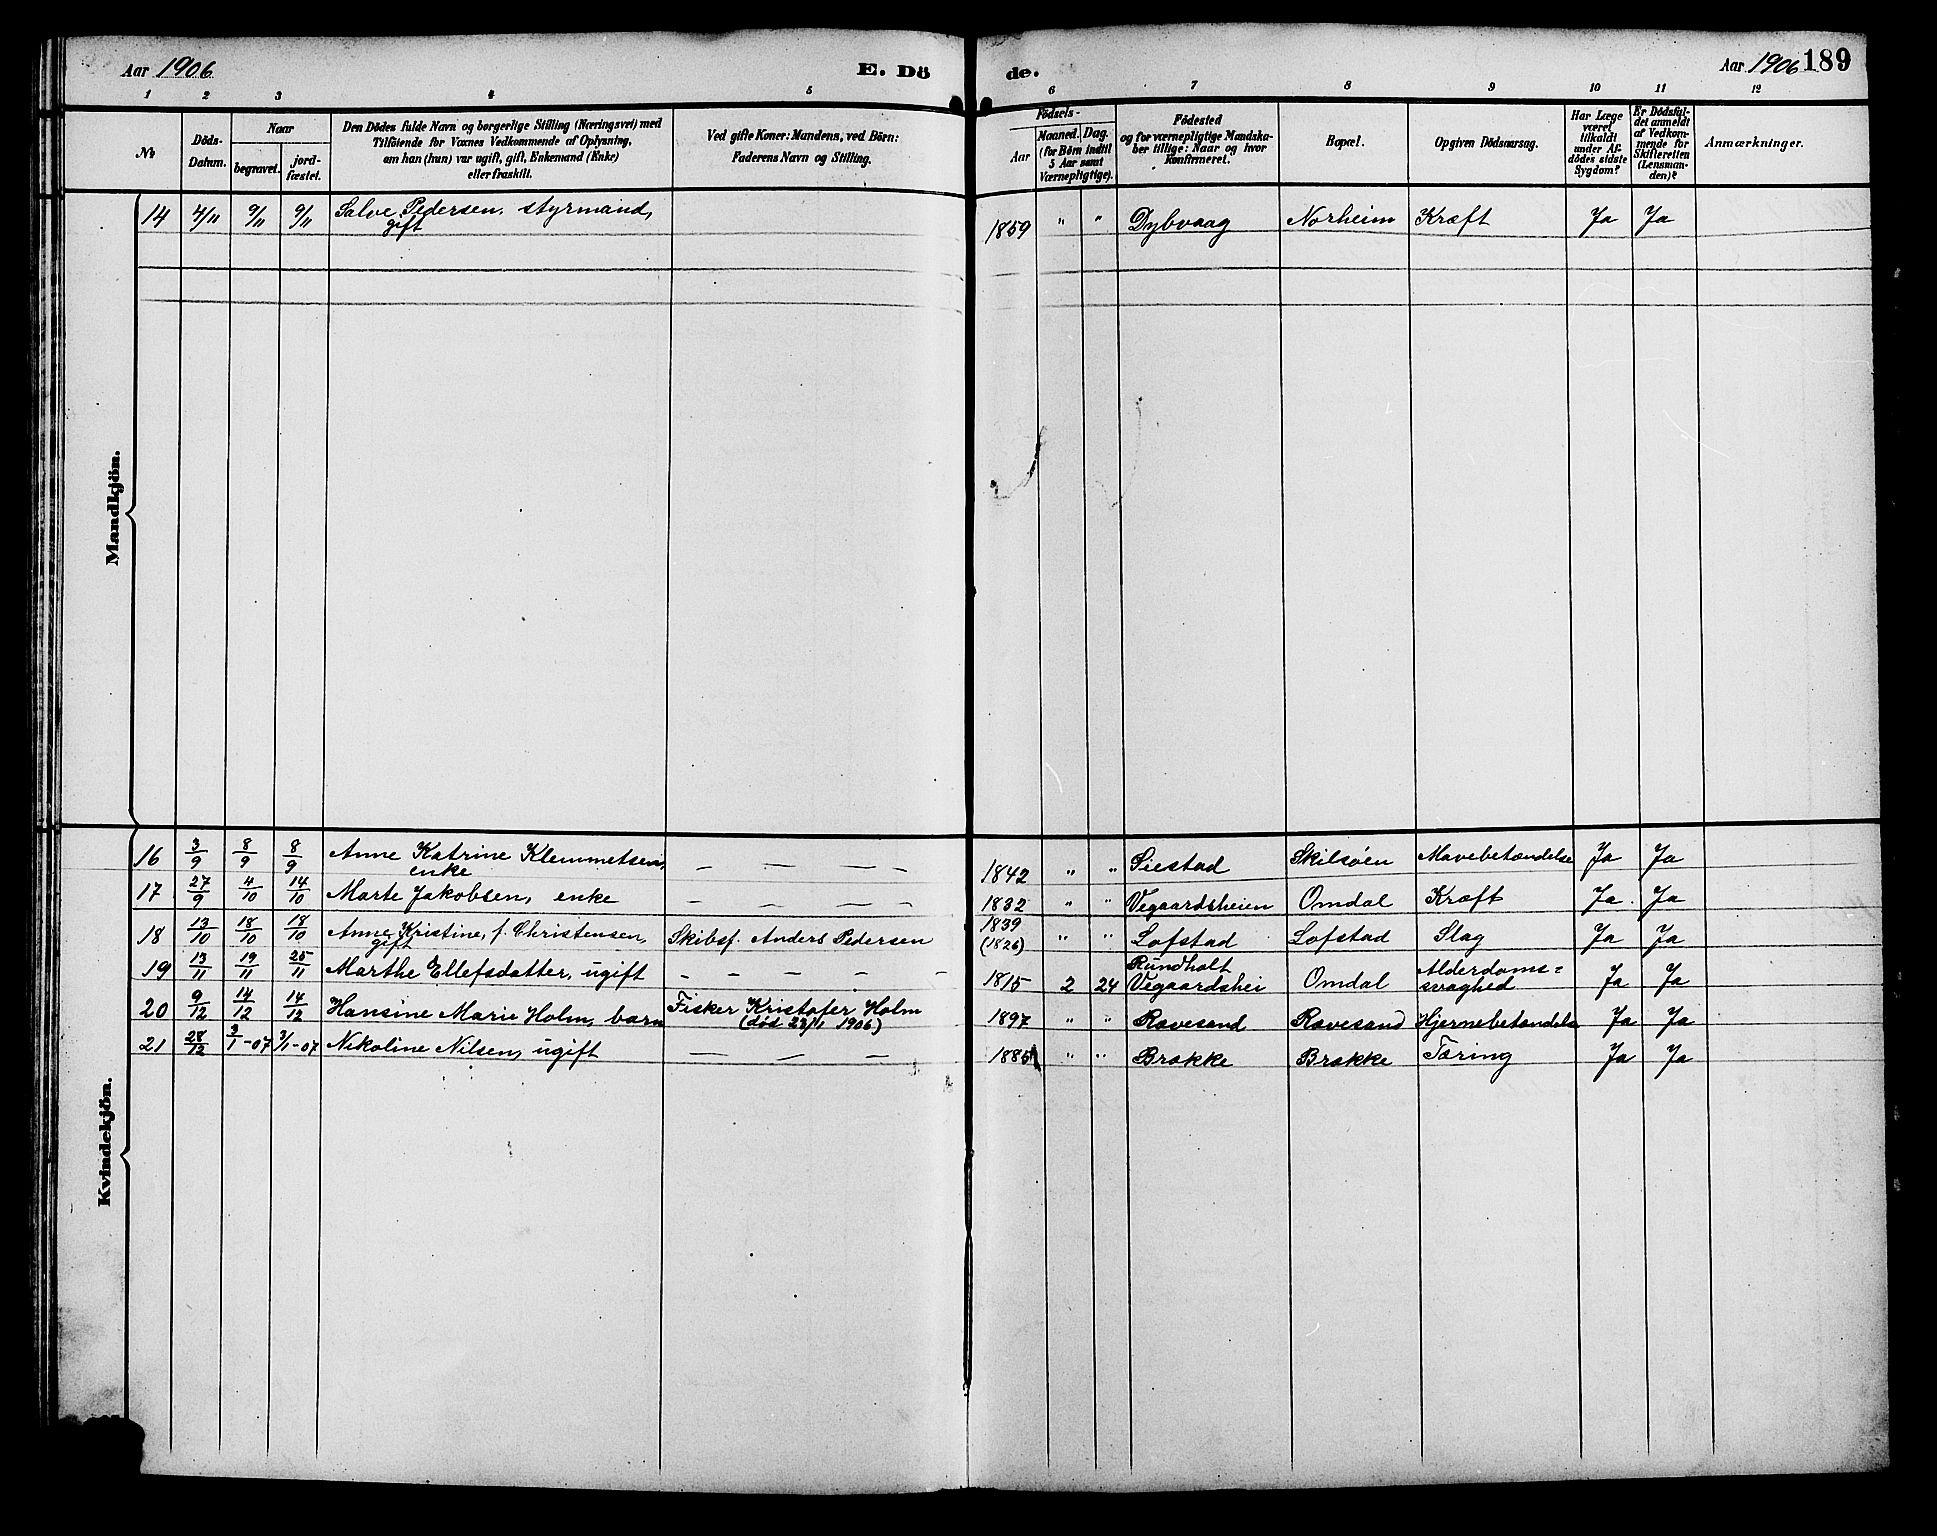 Aar 1906 E. Dö de. Aar 1906 189
1 2 3 4 5 6 7 8 9 10 11 12
№
Döds-Datum.
Naar
begravet.
jord-fæstet.
Den Dödes fulde Navn og borgerlige Stilling (Næringsvei) med
Tilföiende for Voxnes Vedkommende af Oplysning,
om han (hun) var ugift, gift, Enkemand (Enke)
eller fraskilt.
Ved gifte Koner: Mandens, ved Börn:
Faderens Navn og Stilling.
Födsels-
Aar
Maaned. Dag.
(for Börn indtil
5 Aar samt
Værnepligtige).
Födested
og for værnepligtige Mandska-
ber tillige: Naar og hvor
Konfirmeret.
Bopæl.
Opgiven Dödsaarsag.
Har Læge
været
tilkaldt
under Af-
dödes sidste
Sygdom?
Er Dödsfal-
det anmeldt
af Vedkom-
mende for
Skifteretten
(Lensman-
den)?
Anmærkninger.
Mandkjön.
14 4/11 9/11 9/11 Salve Pedersen, styrmand, 1859 " " Dybvaag Norheim Kræft Ja Ja
gift
Kvindekjön.
16 3/9 8/9 8/9 Anne Katrine Klemmetsen, — — — — 1842 " " Siestad Skilsøen Mavebetændelse Ja Ja
enke
17 27/9 4/10 14/10 Marte Jakobsen, enke — — — — 1832 " " Vegaardsheien Omdal Kræft Ja. Ja
18 13/10 18/10 18/10 Anne Kristine, f. Christensen, Skibsf. Anders Pedersen 1839 " " Lofstad Lofstad Slag Ja Ja
gift (1826)
19 13/11 19/11 25/11 Marthe Ellefsdatter, ugift — — — — — 1815 2 24 Rundholt Omdal Alderdoms=
Vegaardshei svaghed Ja Ja
20 9/12 14/12 14/12 Hansine Marie Holm, barn Fisker Kristofer Holm 1897 " " Ravesand Ravesand Hjernebetændelse Ja Ja
(død 23/1 1906)
21 28/12 3/1-07 3/1-07 Nikoline Nilsen, ugift — — — — 1885 " " Brakke Brakke Tæring Ja Ja